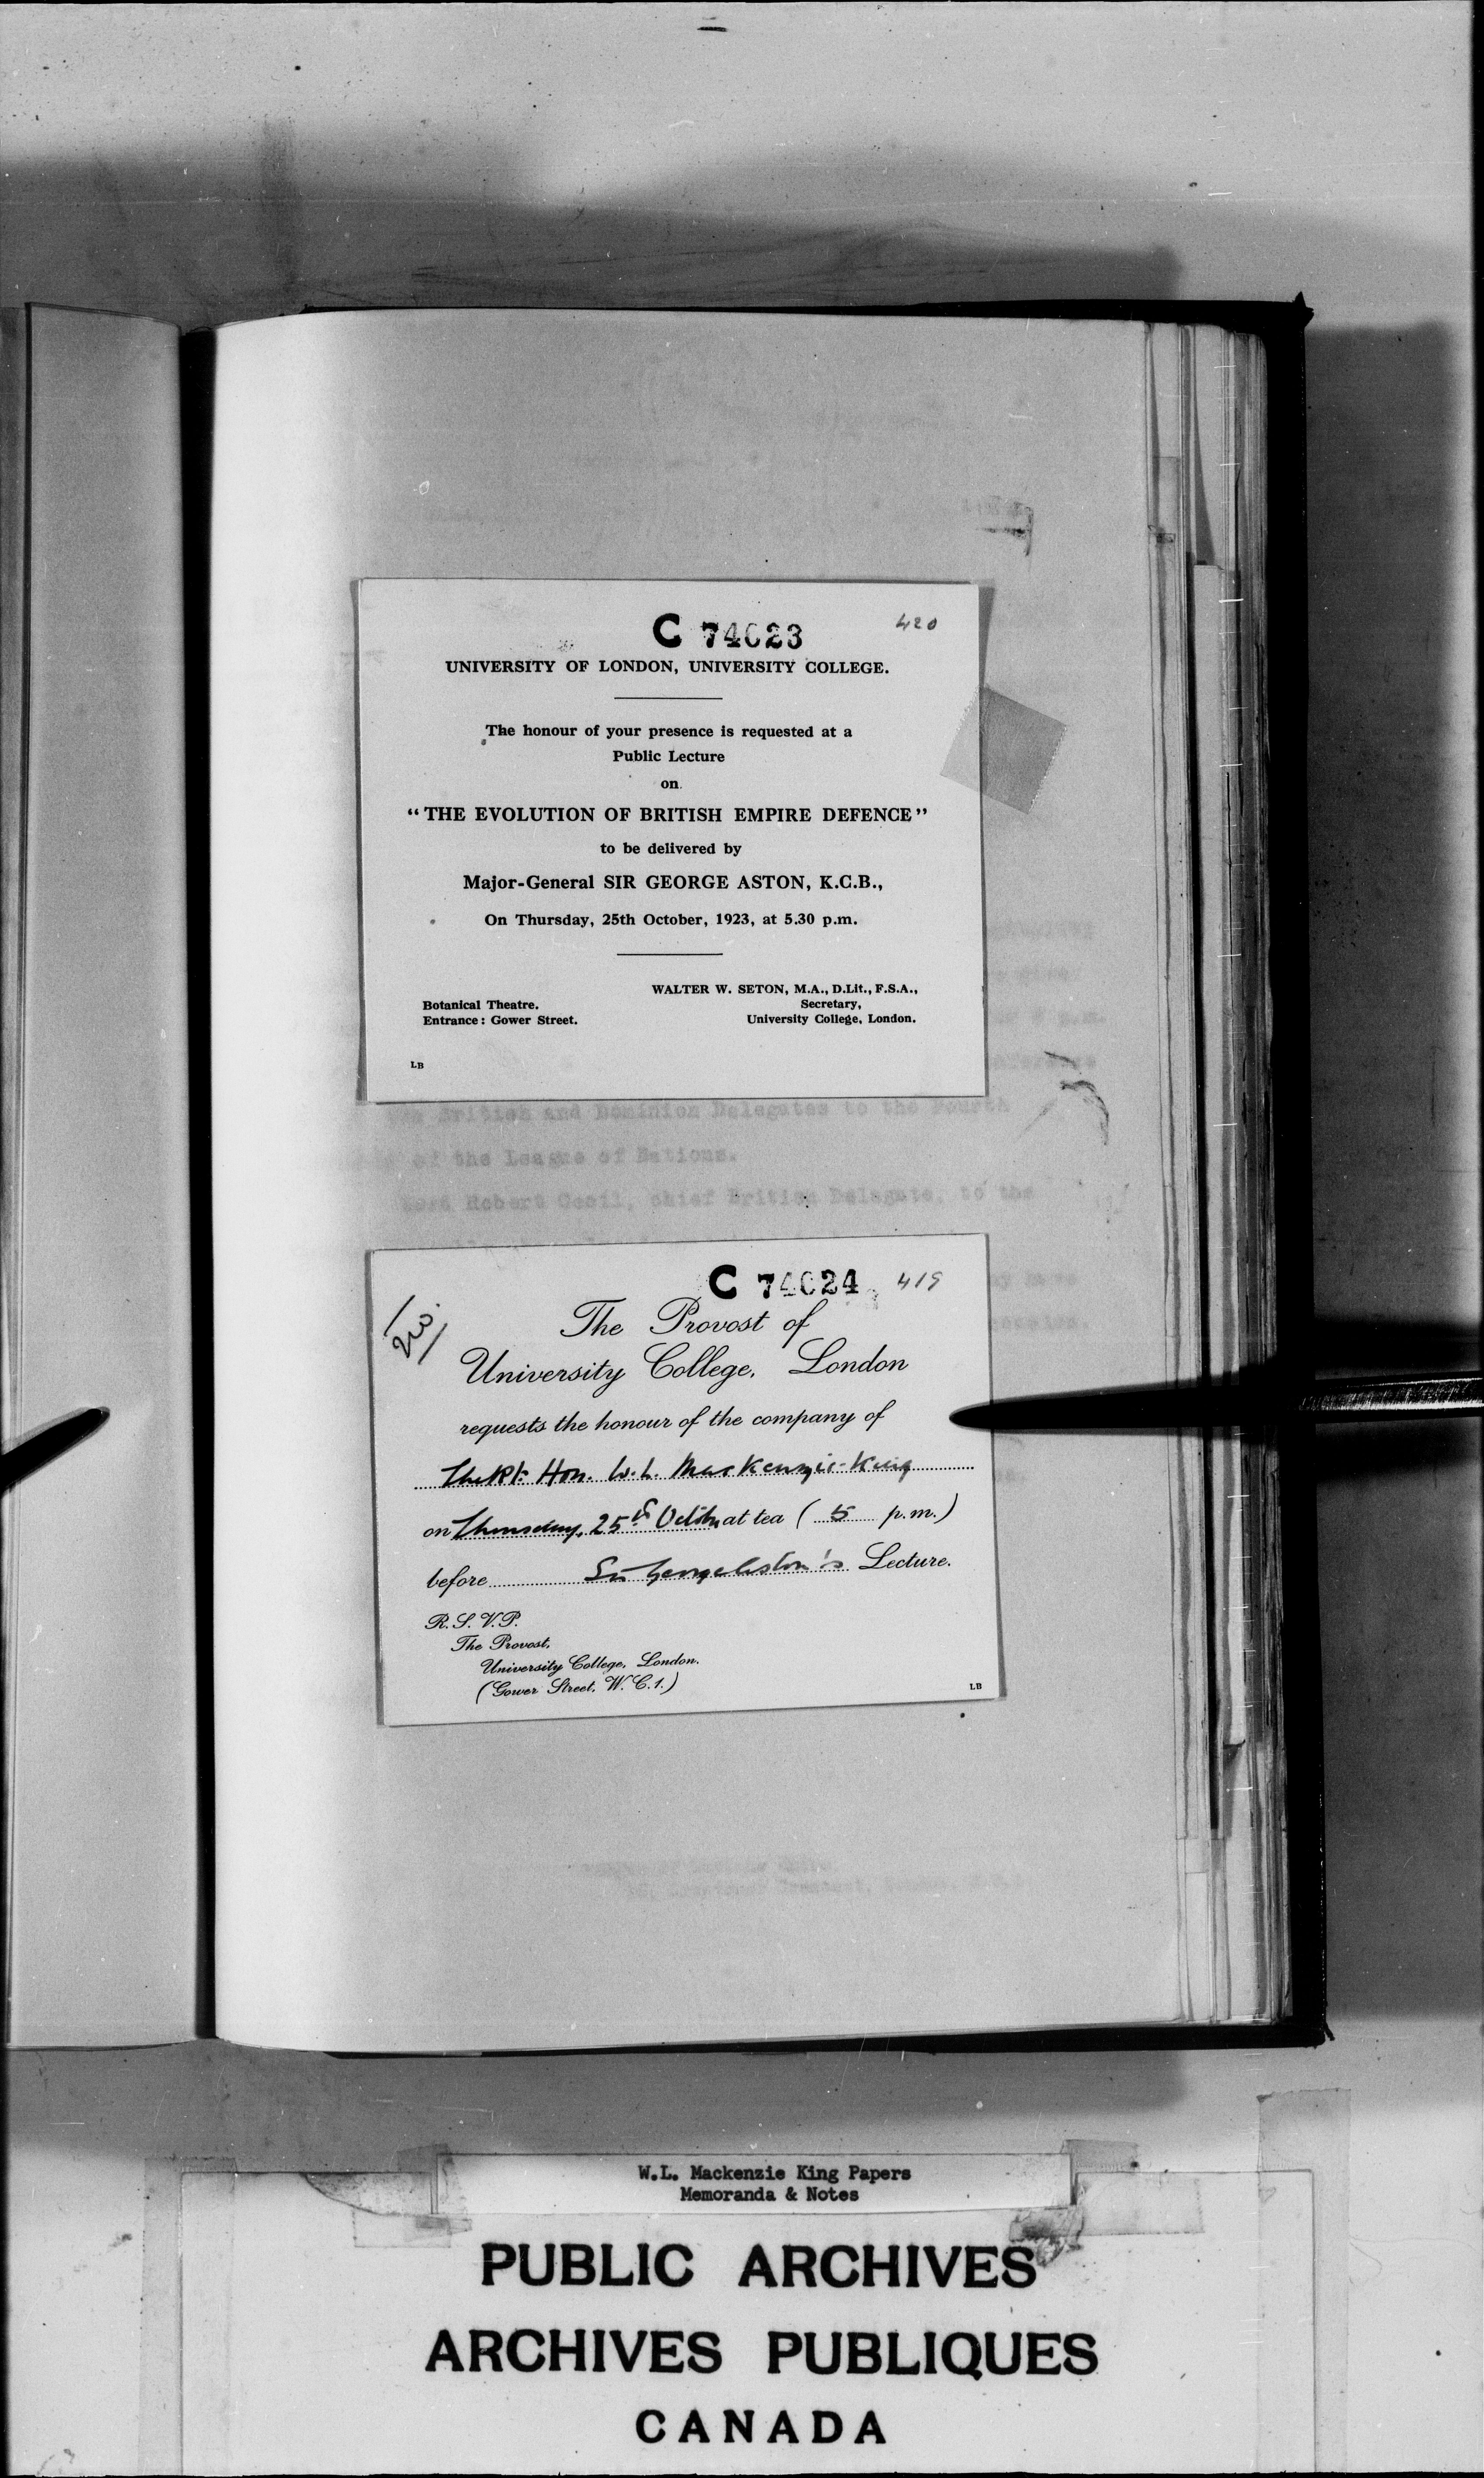 C 74023 420
UNIVERSITY OF LONDON, UNIVERSITY COLLEGE.
The honour of your presence is requested at a
Public Lecture
on
“THE EVOLUTION OF BRITISH EMPIRE DEFENCE”
to be delivered by
Major-General SIR GEORGE ASTON, K.C.B.,
On Thursday, 25th October, 1923, at 5.30 p.m.
WALTER W. SETON, M.A., D.Lit., F.S.A.,
Secretary,
University College, London.
Botanical Theatre.
Entrance: Gower Street.
LB
the British and Dominion Delegates to the Fourth
of the League of Nations.
Lord Robert Cecil, chief British Delegate, to the
C 74024 419
No.
The Provost of
University College, London
requests the honour of the company of
The Rt: Hon. W. L. MacKenzie-King
on Thursday, 25th October at tea ( 5 p.m.)
before Sir George Aston's Lecture.
R.S.V.P.
The Provost,
University College, London.
(Gower Street, W.C.1.)
LB
W.L. Mackenzie King Papers
Memoranda & Notes
PUBLIC ARCHIVES
ARCHIVES PUBLIQUES
CANADA